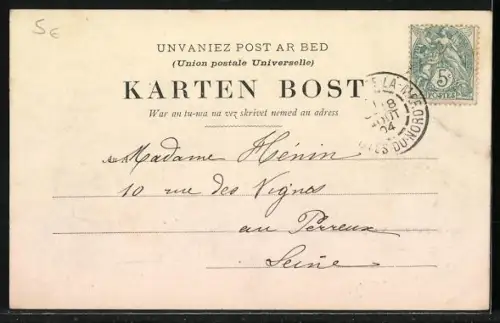 5€
UNVANIEZ POST AR BED
(Union postale Universelle)
KARTEN BOST
War an tu-ma na vez skrivet nemed an adress
5c
LA
8
AOUT
04
DU-NORD
Madame Hénin
10 rue des Vignes
au Perreux
Seine